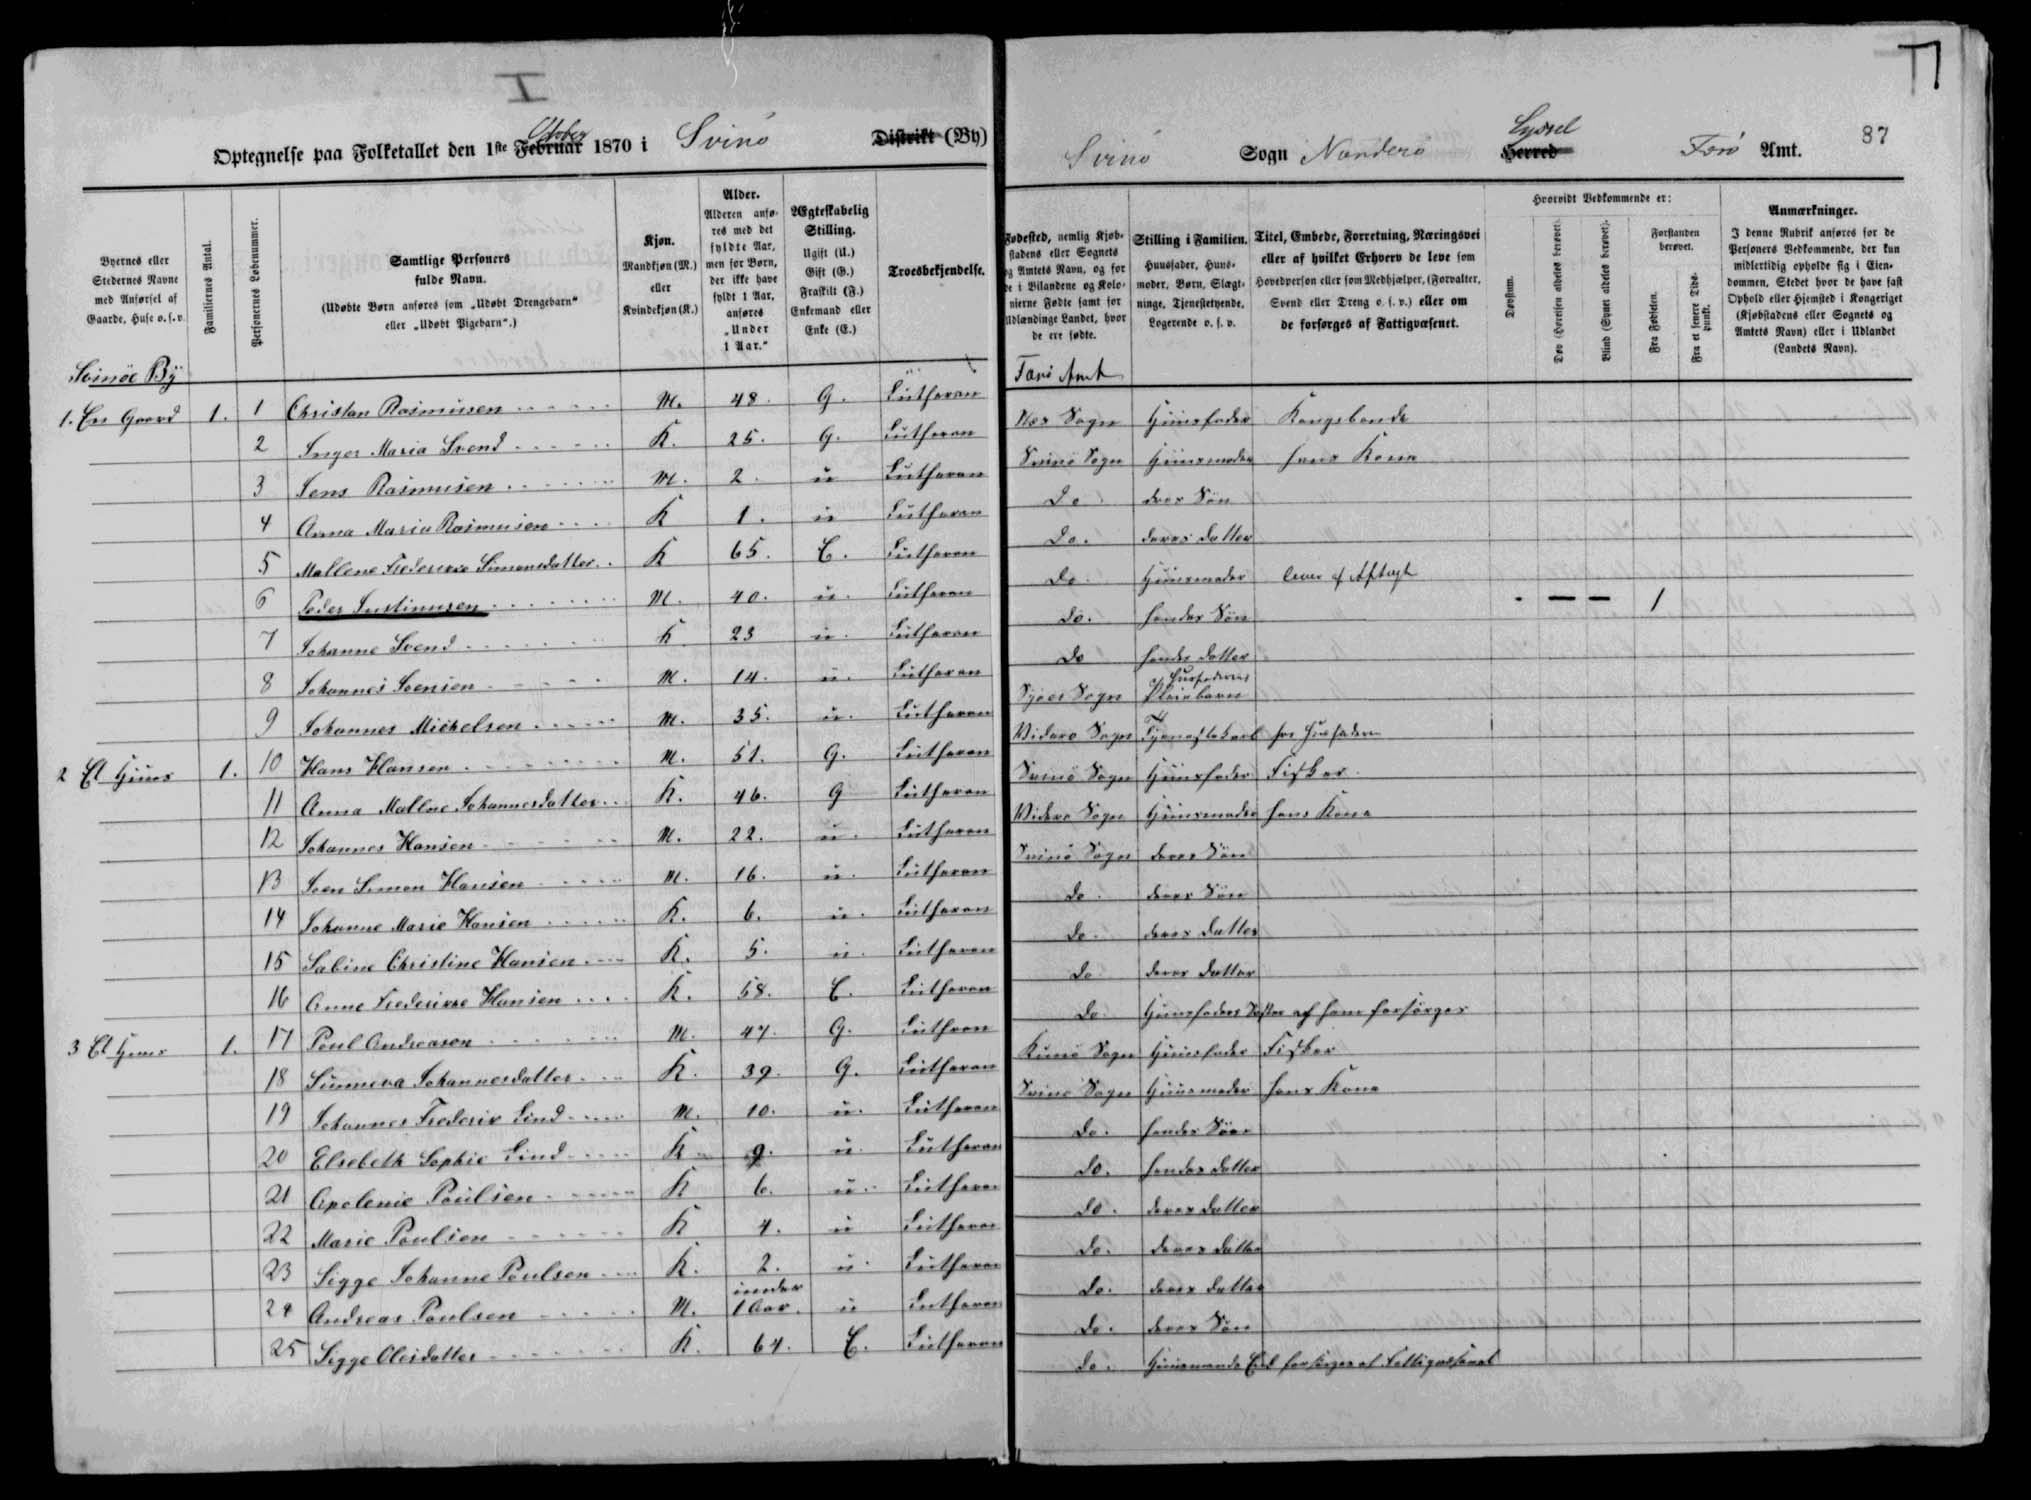 I
Optegnelse paa Folketallet den 1ste Februar October 1870 i Svinø Distrikt (By)
Svinø Sogn Norderø Herred Syssel Færø Amt. 87
Byernes eller Stedernes Navne med Anførsel af Gaarde, Huse o. s. v.
Familiernes Antal.
Personernes Løbenummer.
Samtlige Personers fulde Navn. (Udøbte Børn anføres som „Udøbt Drengebarn“ eller „Udøbt Pigebarn“.)
Kjøn. Mandkjøn (M.) eller Kvindekjøn (K.)
Alder. Alderen anføres med det fyldte Aar, men for Børn, der ikke have fyldt 1 Aar, anføres „Under 1 Aar.“
Ægteskabelig Stilling. Ugift (U.) Gift (G.) Fraskilt (F.) Enkemand eller Enke (E.)
Troesbekjendelse.
Fødested, nemlig Kjøbstadens eller Sognets og Amtets Navn, og for de i Bilandene og Kolonierne Fødte samt for Udlændinge Landet, hvor de ere fødte.
Stilling i Familien. Huusfader, Huusmoder, Børn, Slægtninge, Tjenestetyende, Logerende o. s. v.
Titel, Embede, Forretning, Næringsvei eller af hvilket Erhverv de leve som Hovedperson eller som Medhjælper, (Forvalter, Svend eller Dreng o. s. v.) eller om de forsørges af Fattigvæsenet.
Hvorvidt Vedkommende er:
Døvstum.
Døv (Hørelsen aldeles berøvet).
Blind (Synet aldeles berøvet).
Forstanden berøvet.
Fra Fødselen.
Fra et senere Tidspunkt.
Anmærkninger. I denne Rubrik anføres for de Personers Vedkommende, der kun midlertidig opholde sig i Eiendommen, Stedet hvor de have fast Ophold eller Hjemsted i Kongeriget (Kjøbstadens eller Sognets og Amtets Navn) eller i Udlandet (Landets Navn).
Svinöe By Færö Amt
1. En Gaard 1. 1 Christan Rasmusen M. 48. G. Lutheran Næs Sogn Huusfader Kongsbonde
2 Inger Maria Svend K. 25. G. Lutheran Svinö Sogn Huusmoder hans Kone
3 Jens Rasmusen M. 2. u Lutheran Do deres Sön
4 Anna Maria Rasmusen K 1. u Lutheran Do. deres datter
5 Mallene Frederikke Simonsdatter K 65. E. Lutheran Do Huusmoder lever af Aftægt
6 Peder Justinusen M. 40. u. Lutheran do. hendes Sön - — — 1
7 Johanne Svend K 23 u. Lutheran do hendes datter
8 Johannes Svensen M. 14. u. Lutheran Sogn af Husfaderens Pleiebarn
9 Johannes Michelsen M. 35. u. Lutheran Viderø Sogn Tjenestekarl hos Husfaderen
2 Et Huus 1. 10 Hans Hansen M. 51. G. Lutheran Svinö Sogn Huusfader Fisker
11 Anna Mallne Johannesdatter K. 46. G Lutheran Viderø Sogn Huusmoder hans Kone
12 Johannes Hansen M. 22. u. Lutheran Svinö Sogn deres Sön
13 Sven Simon Hansen M. 16. u. Lutheran do. deres Sön
14 Johanne Marie Hansen K. 6. u. Lutheran do. deres datter
15 Sabine Christine Hansen K. 5. u. Lutheran do deres datter
16 Anne Frederikke Hansen K. 58. E. Lutheran do. Huusfaders Søster af ham forsörges
3 Et Huus 1. 17 Poul Andreasen M. 47. G. Lutheran Kunö Sogn Huusfader Fisker
18 Sunneva Johannesdatter K. 39. G. Lutheran Svinö Sogn Huusmoder hans Kone
19 Johannes Frederik Lind M. 10. u. Lutheran do. hendes Sön
20 Elsebeth Sophie Lind K 9. u. Lutheran do. hendes datter
21 Apolenie Poulsen K 6. u. Lutheran do. deres datter
22 Marie Poulsen K 4. u Lutheran do. deres datter
23 Sigge Johanne Poulsen K. 2. u. Lutheran do. deres datter
24 Andreas Poulsen M. under 1 Aar. u Lutheran do. deres Sön
25 Sigge Olesdatter K. 64. E. Lutheran do. Huusmands forsörges af Fattigvæsenet